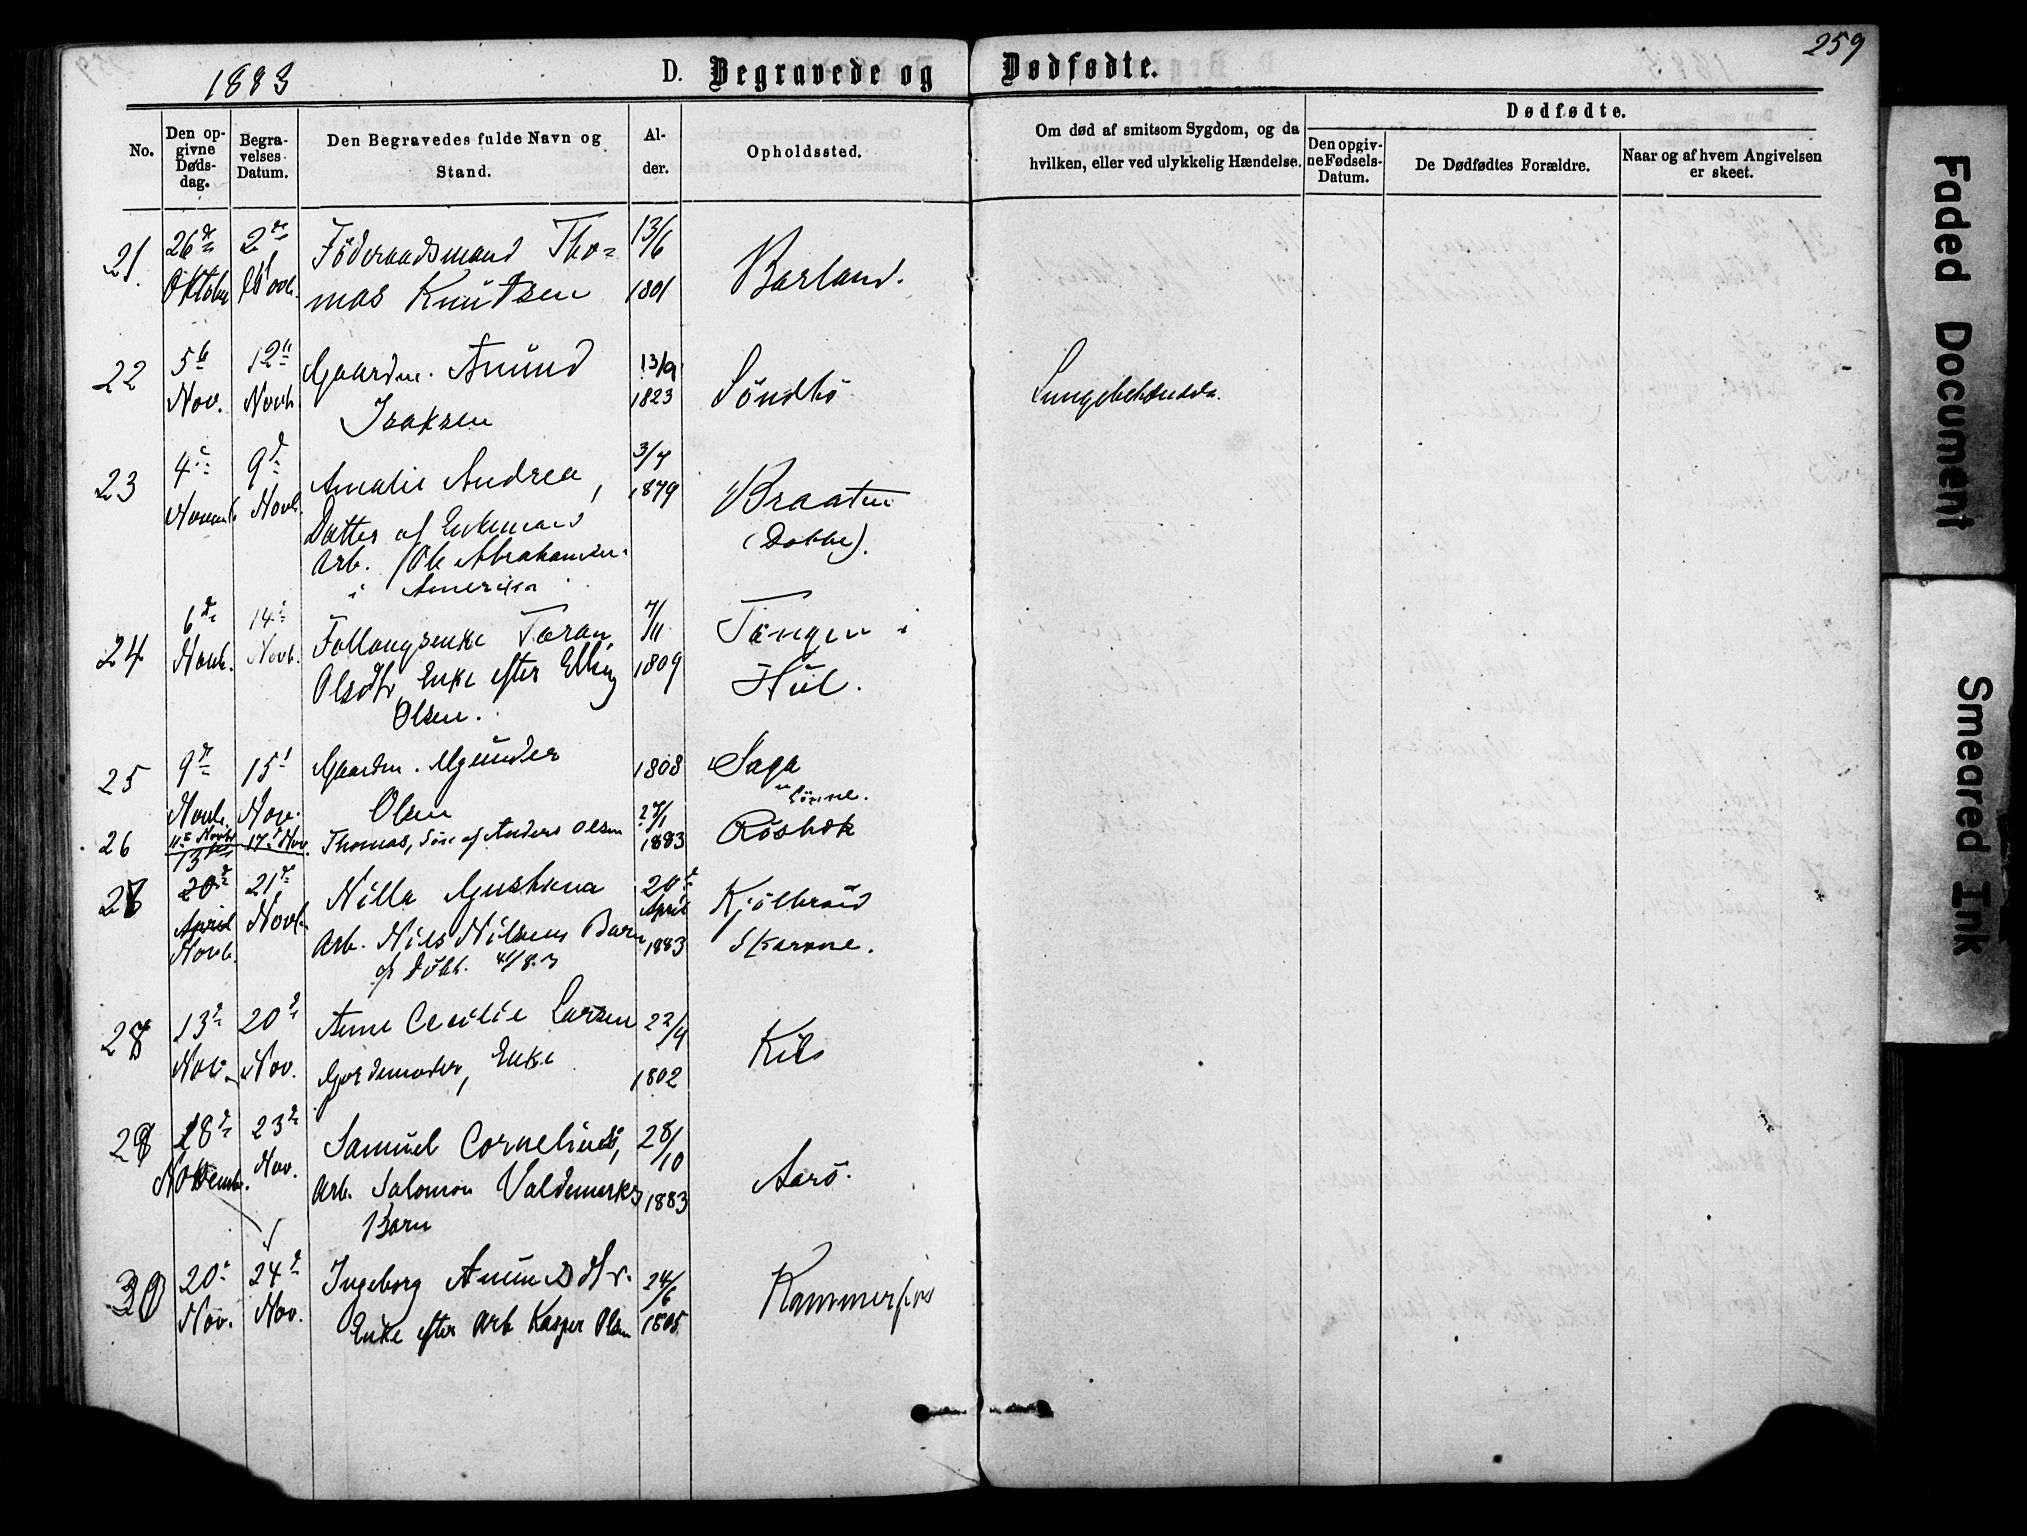 1883
D. Begravede og Dødfødte.
259
No.
Den opgivne Dødsdag.
Begravelses Datum.
Den Begravedes fulde Navn og Stand.
Alder.
Opholdssted.
Om død af smitsom Sygdom, og da hvilken, eller ved ulykkelig Hændelse.
Dødfødte.
Den opgivne Fødsels-Datum.
De Dødfødtes Forældre.
Naar og af hvem Angivelsen er skeet.
21. 26de 2den Föderaadsmand Tho= 13/6
Oktober Novb. mas Knudsen 1801 Barland.
22 5te 12te Gaardm. Amund 13/9
Nov. Novb. Isaksen 1823 Söndbö
23 4de 9de Amalie Andrea, 3/7 1879 Braaten
Novemb. Novb. Datter af Enkemand (Dobbe).
Arb. Ole Abrahamsen
i Amerika
24 6te 14de Follaugsenke Taran 7/11 Tangen i
Novb. Novb. Olsdtr, Enke efter Elling 1809 Hul.
Olsen.
25 9de 15d Gaardm. Gunder 1808 Saga
Novb. Nov. Olsen
26 11te Novb. 17de Nov. Thomas, Sön af Anders Olsen 27/1 1883 Rösbæk
27 20de 21de Nilla Gustava 20de April Kjölbrönd
April Novb. Arb. Nils Nilsens Barn 1883 Skarvne.
Novb.
28 13de 20de Anne Cecilie Larsen 22/9
Nov. Nov. Gordemoder, Enke 1802 Kil
29 18de 23de Samuel Cornelius, 28/10
Novemb. Nov. Arb. Salomon Valdemarks 1883 Aarö.
Barn
30 20de 24de Ingeborg Amundsdtr. 24/6 Kammerfos
Nov. Nov. Enke efter Arb Kasper Olsen 1805
Faded Document
Smeared Ink